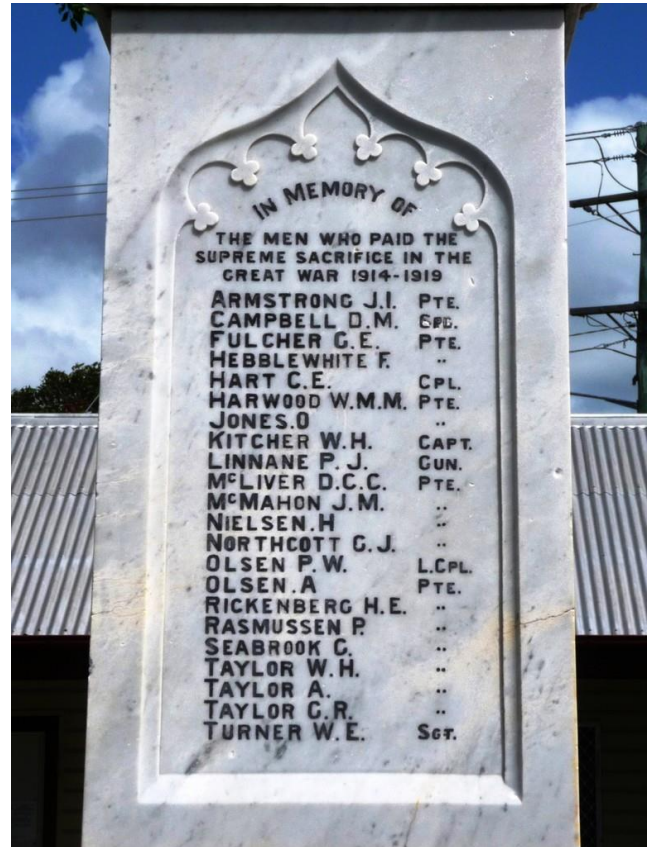 IN MEMORY OF
THE MEN WHO PAID THE
SUPREME SACRIFICE IN THE
GREAT WAR 1914-1919
ARMSTRONG J.I. PTE.
CAMPBELL D.M.
FULCHER G.E. PTE.
HEBBLEWHITE F. "
HART C.E. CPL.
HARWOOD W.M.M. PTE.
JONES.O "
KITCHER W.H. CAPT.
LINNANE P.J. GUN.
McLIVER D.C.C. PTE.
McMAHON J.M. "
NIELSEN.H "
NORTHCOTT G.J. "
OLSEN P.W. L.CPL.
OLSEN.A PTE.
RICKENBERG H.E. "
RASMUSSEN P. "
SEABROOK G. "
TAYLOR W.H. "
TAYLOR A. "
TAYLOR G.R. "
TURNER W.E. SGT.